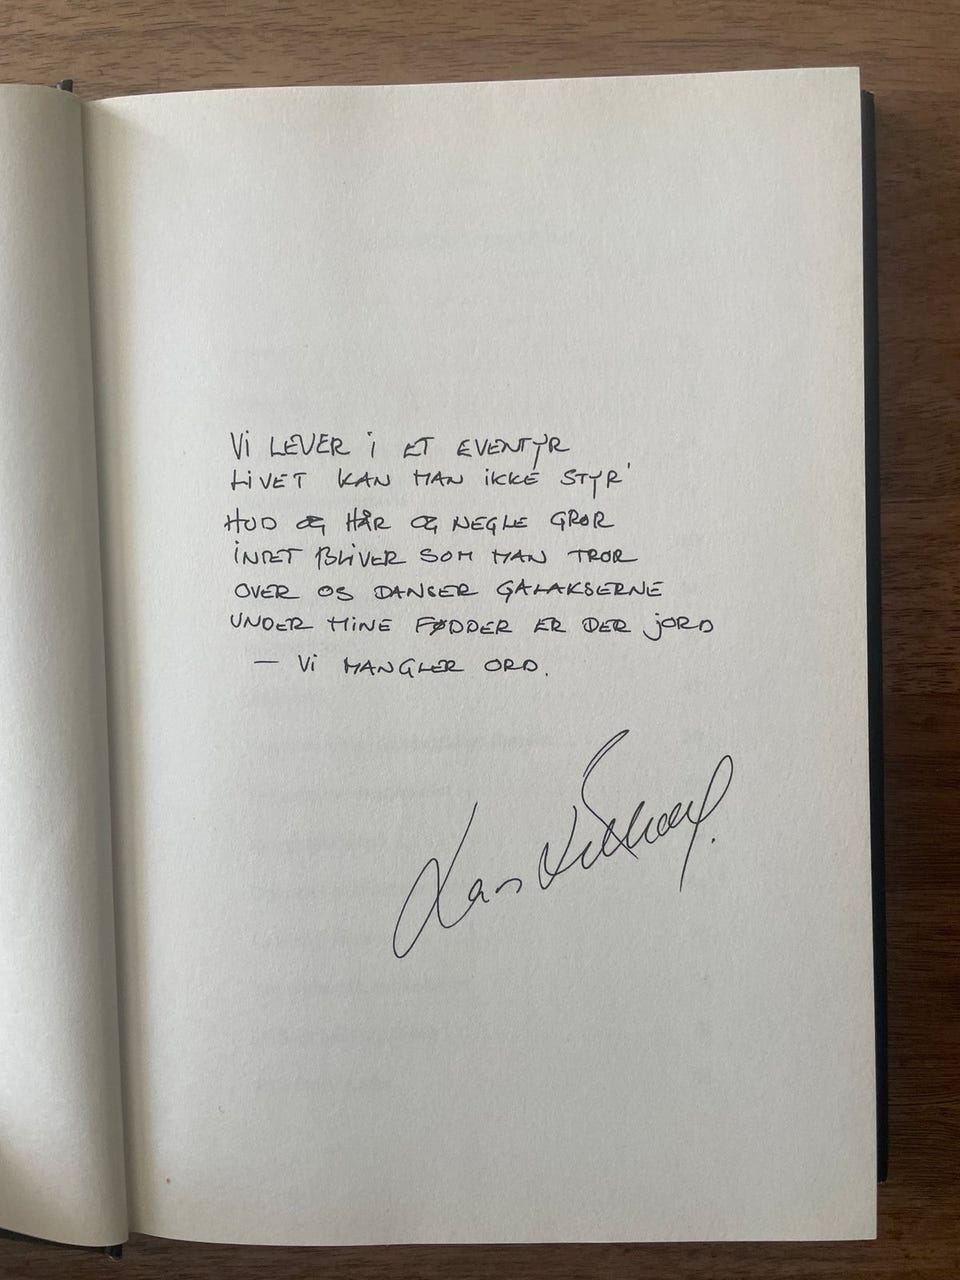 Vi LEVER i ET EVENTYR
LiVET KAN MAN iKKE STYR'
HUD OG HÅR OG NEGLE GROR
iNTET BLiVER SOM MAN TROR
OVER OS DANSER GALAKSERNE
UNDER MINE FØDDER ER DER jORD
— Vi MANGLER ORD.
Lars